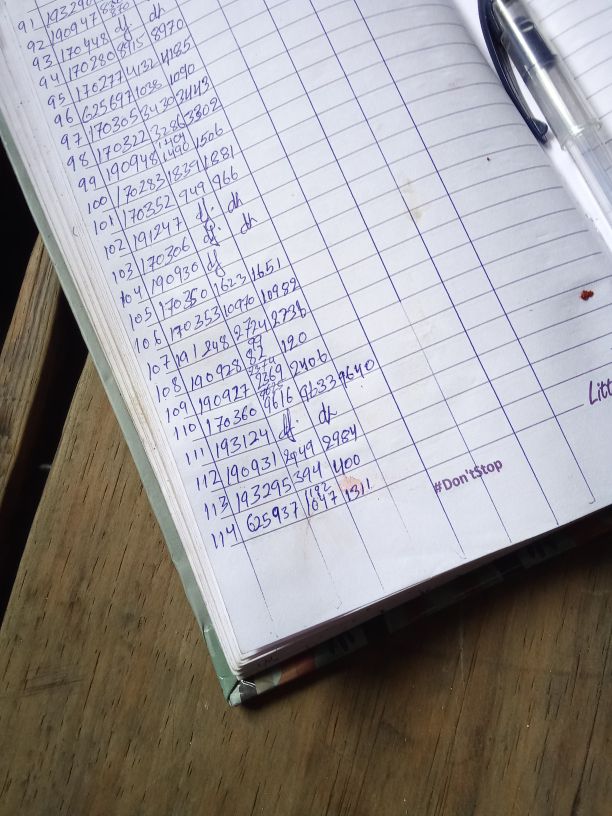 91 193290
92 190947
93 170448 df. dh
94 170280 8915 8970
95 170277 4132 4185
96 625697 1038 1090
97 170305 3430 3443
98 170322 3286 3302
99 190948 1490 1506
100 170283 1839 1881
101 170352 949 966
102 191247 df. dh
103 170306 df. dh
104 190930 df
105 170350 1623 1651
106 170353 10970 10982
107 191248 2724 2736
108 190928 82 120
109 190927 2369 2406
110 170360 9616 9633 9640
111 193124 df. dh
112 190931 2949 2984
113 193295 394 400
114 625937 1047 1311
#Don'tStop
Litt